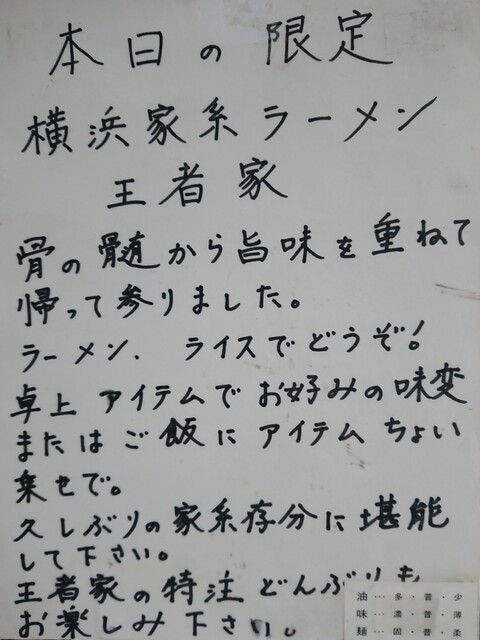 本日の限定
横浜家系ラーメン
王者家
骨の髄から旨味を重ねて
帰って参りました。
ラーメン、ライスでどうぞ!
卓上アイテムでお好みの味変
またはご飯にアイテムちょい
乗せで。
久しぶりの家系存分に堪能
して下さい。
王者家の特注どんぶりも
お楽しみ下さい。
油…多・普・少
味…濃・普・薄
麺…固・普・柔